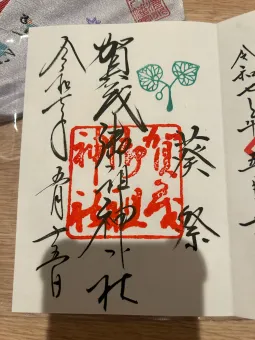 葵祭
賀茂御祖神社
令和七年五月十五日
賀茂
御祖
神社
令和七年